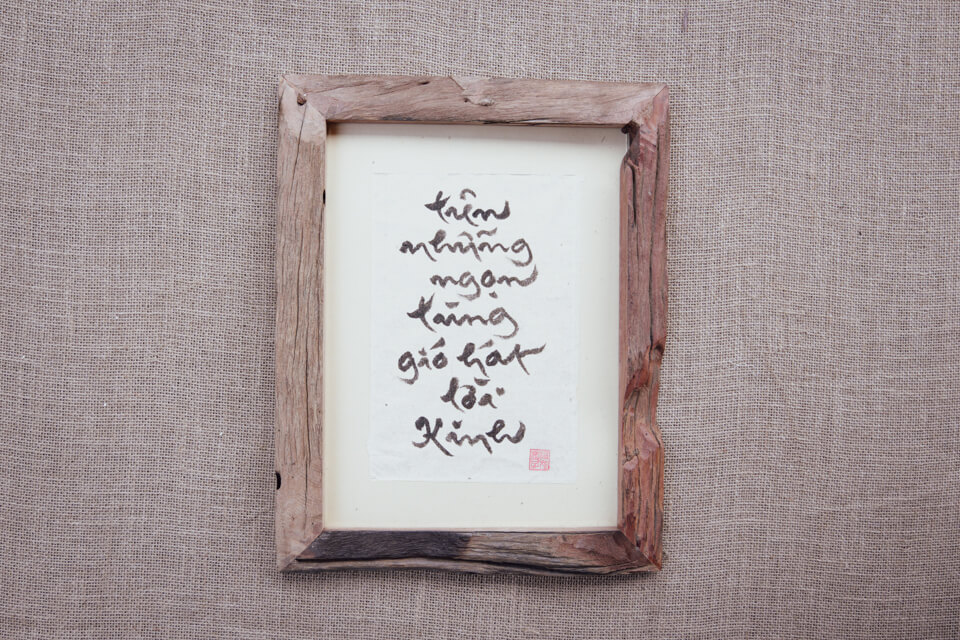 trên
những
ngọn
tùng
gió hát
lời
Kinh